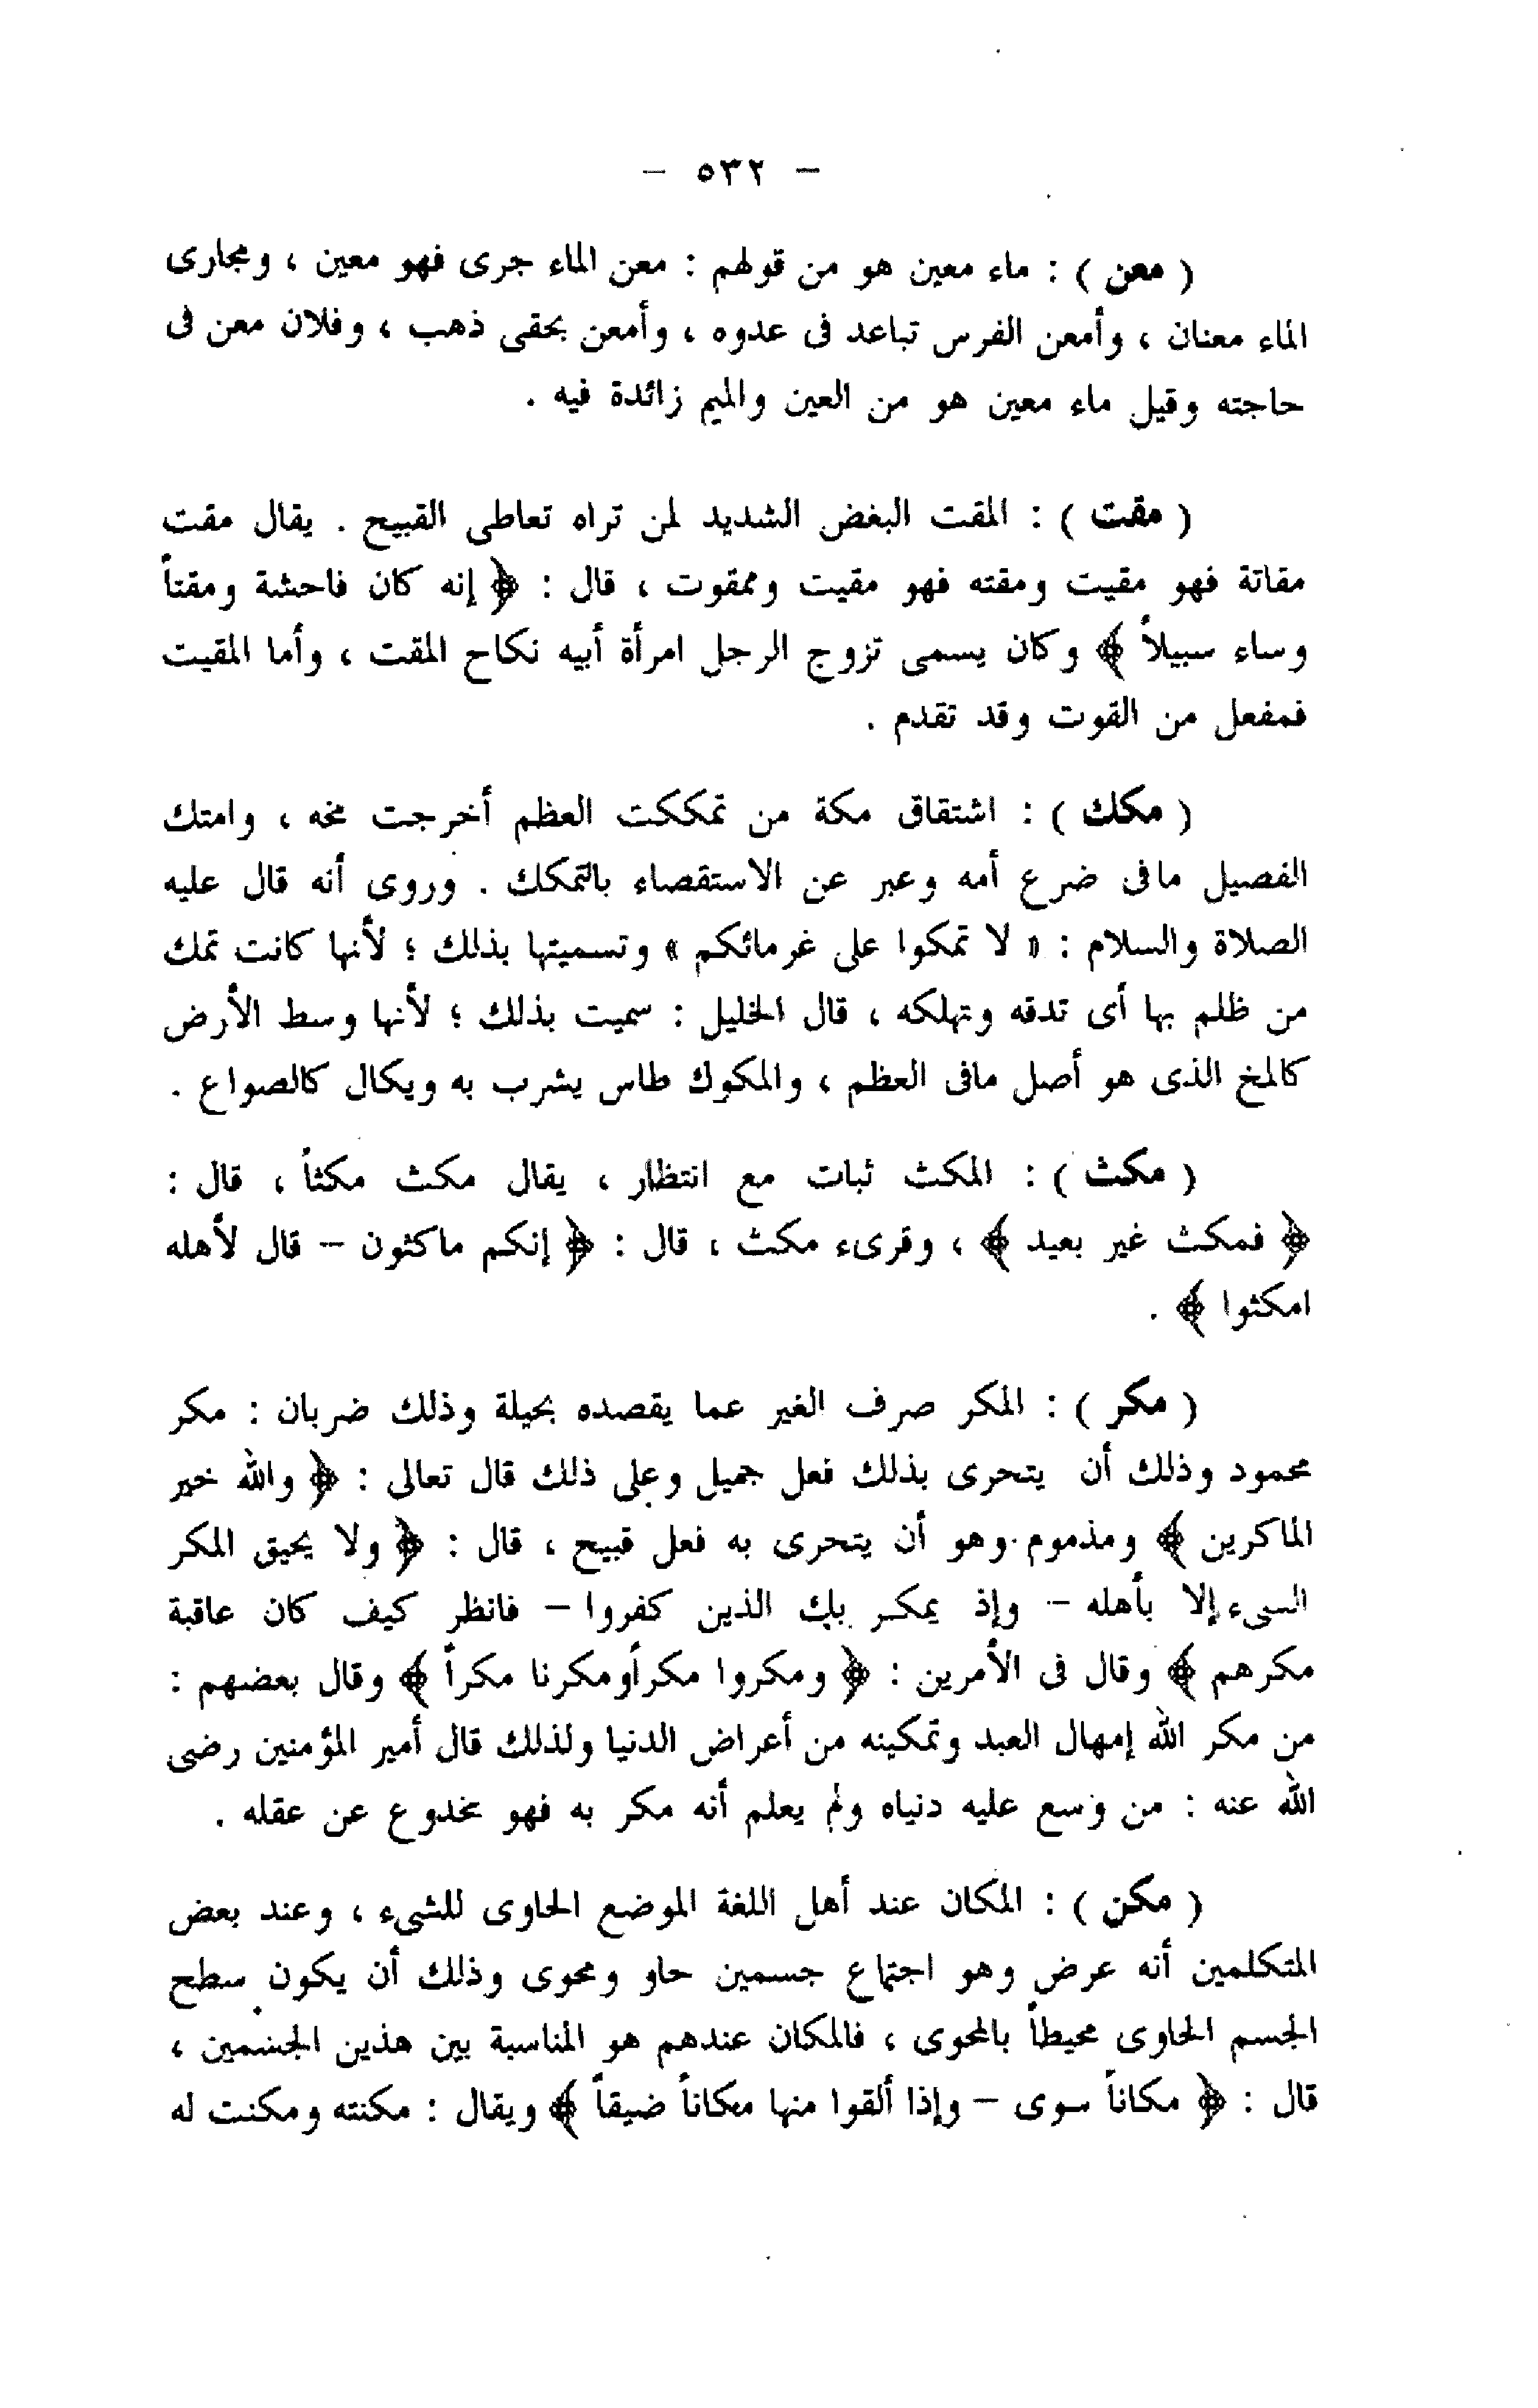 – ٥٣٢ –
( معن ) : ماء معين هو من قولهم : معن الماء جرى فهو معين ، ومجارى
الماء معنان ، وأمعن الفرس تباعد فى عدوه ، وأمعن بحقى ذهب ، وفلان معن فى
حاجته وقيل ماء معين هو من العين والميم زائدة فيه .
( مقت ) : المقت البغض الشديد لمن تراه تعاطى القبيح . يقال مقت
مقاتة فهو مقيت ومقته فهو مقيت وممقوت ، قال : ﴿ إنه كان فاحشة ومقتاً
وساء سبيلاً ﴾ وكان يسمى تزوج الرجل امرأة أبيه نكاح المقت ، وأما المقيت
فمفعل من القوت وقد تقدم .
( مكك ) : اشتقاق مكة من تمككت العظم أخرجت مخه ، وامتك
الفصيل مافى ضرع أمه وعبر عن الاستقصاء بالتمكك . وروى أنه قال عليه
الصلاة والسلام : « لا تمكوا على غرمائكم » وتسميتها بذلك ؛ لأنها كانت تمك
من ظلم بها أى تدقه وتهلكه ، قال الخليل : سميت بذلك ؛ لأنها وسط الأرض
كالمخ الذى هو أصل مافى العظم ، والمكوك طاس يشرب به ويكال كالصواع .
( مكث ) : المكث ثبات مع انتظار ، يقال مكث مكثاً ، قال :
﴿ فمكث غير بعيد ﴾ ، وقرىء مكث ، قال : ﴿ إنكم ماكثون – قال لأهله
امكثوا ﴾ .
( مكر ) : المكر صرف الغير عما يقصده بحيلة وذلك ضربان : مكر
محمود وذلك أن يتحرى بذلك فعل جميل وعلى ذلك قال تعالى : ﴿ والله خير
الماكرين ﴾ ومذموم وهو أن يتحرى به فعل قبيح ، قال : ﴿ ولا يحيق المكر
السىء إلا بأهله – وإذ يمكر بك الذين كفروا – فانظر كيف كان عاقبة
مكرهم ﴾ وقال فى الأمرين : ﴿ ومكروا مكراً ومكرنا مكراً ﴾ وقال بعضهم :
من مكر الله إمهال العبد وتمكينه من أعراض الدنيا ولذلك قال أمير المؤمنين رضى
الله عنه : من وسع عليه دنياه ولم يعلم أنه مكر به فهو مخدوع عن عقله .
( مكن ) : المكان عند أهل اللغة الموضع الحاوى للشىء ، وعند بعض
المتكلمين أنه عرض وهو اجتماع جسمين حاو ومحوى وذلك أن يكون سطح
الجسم الحاوى محيطاً بالمحوى ، فالمكان عندهم هو المناسبة بين هذين الجسمين ،
قال : ﴿ مكاناً سوى – وإذا ألقوا منها مكاناً ضيقاً ﴾ ويقال : مكنته ومكنت له